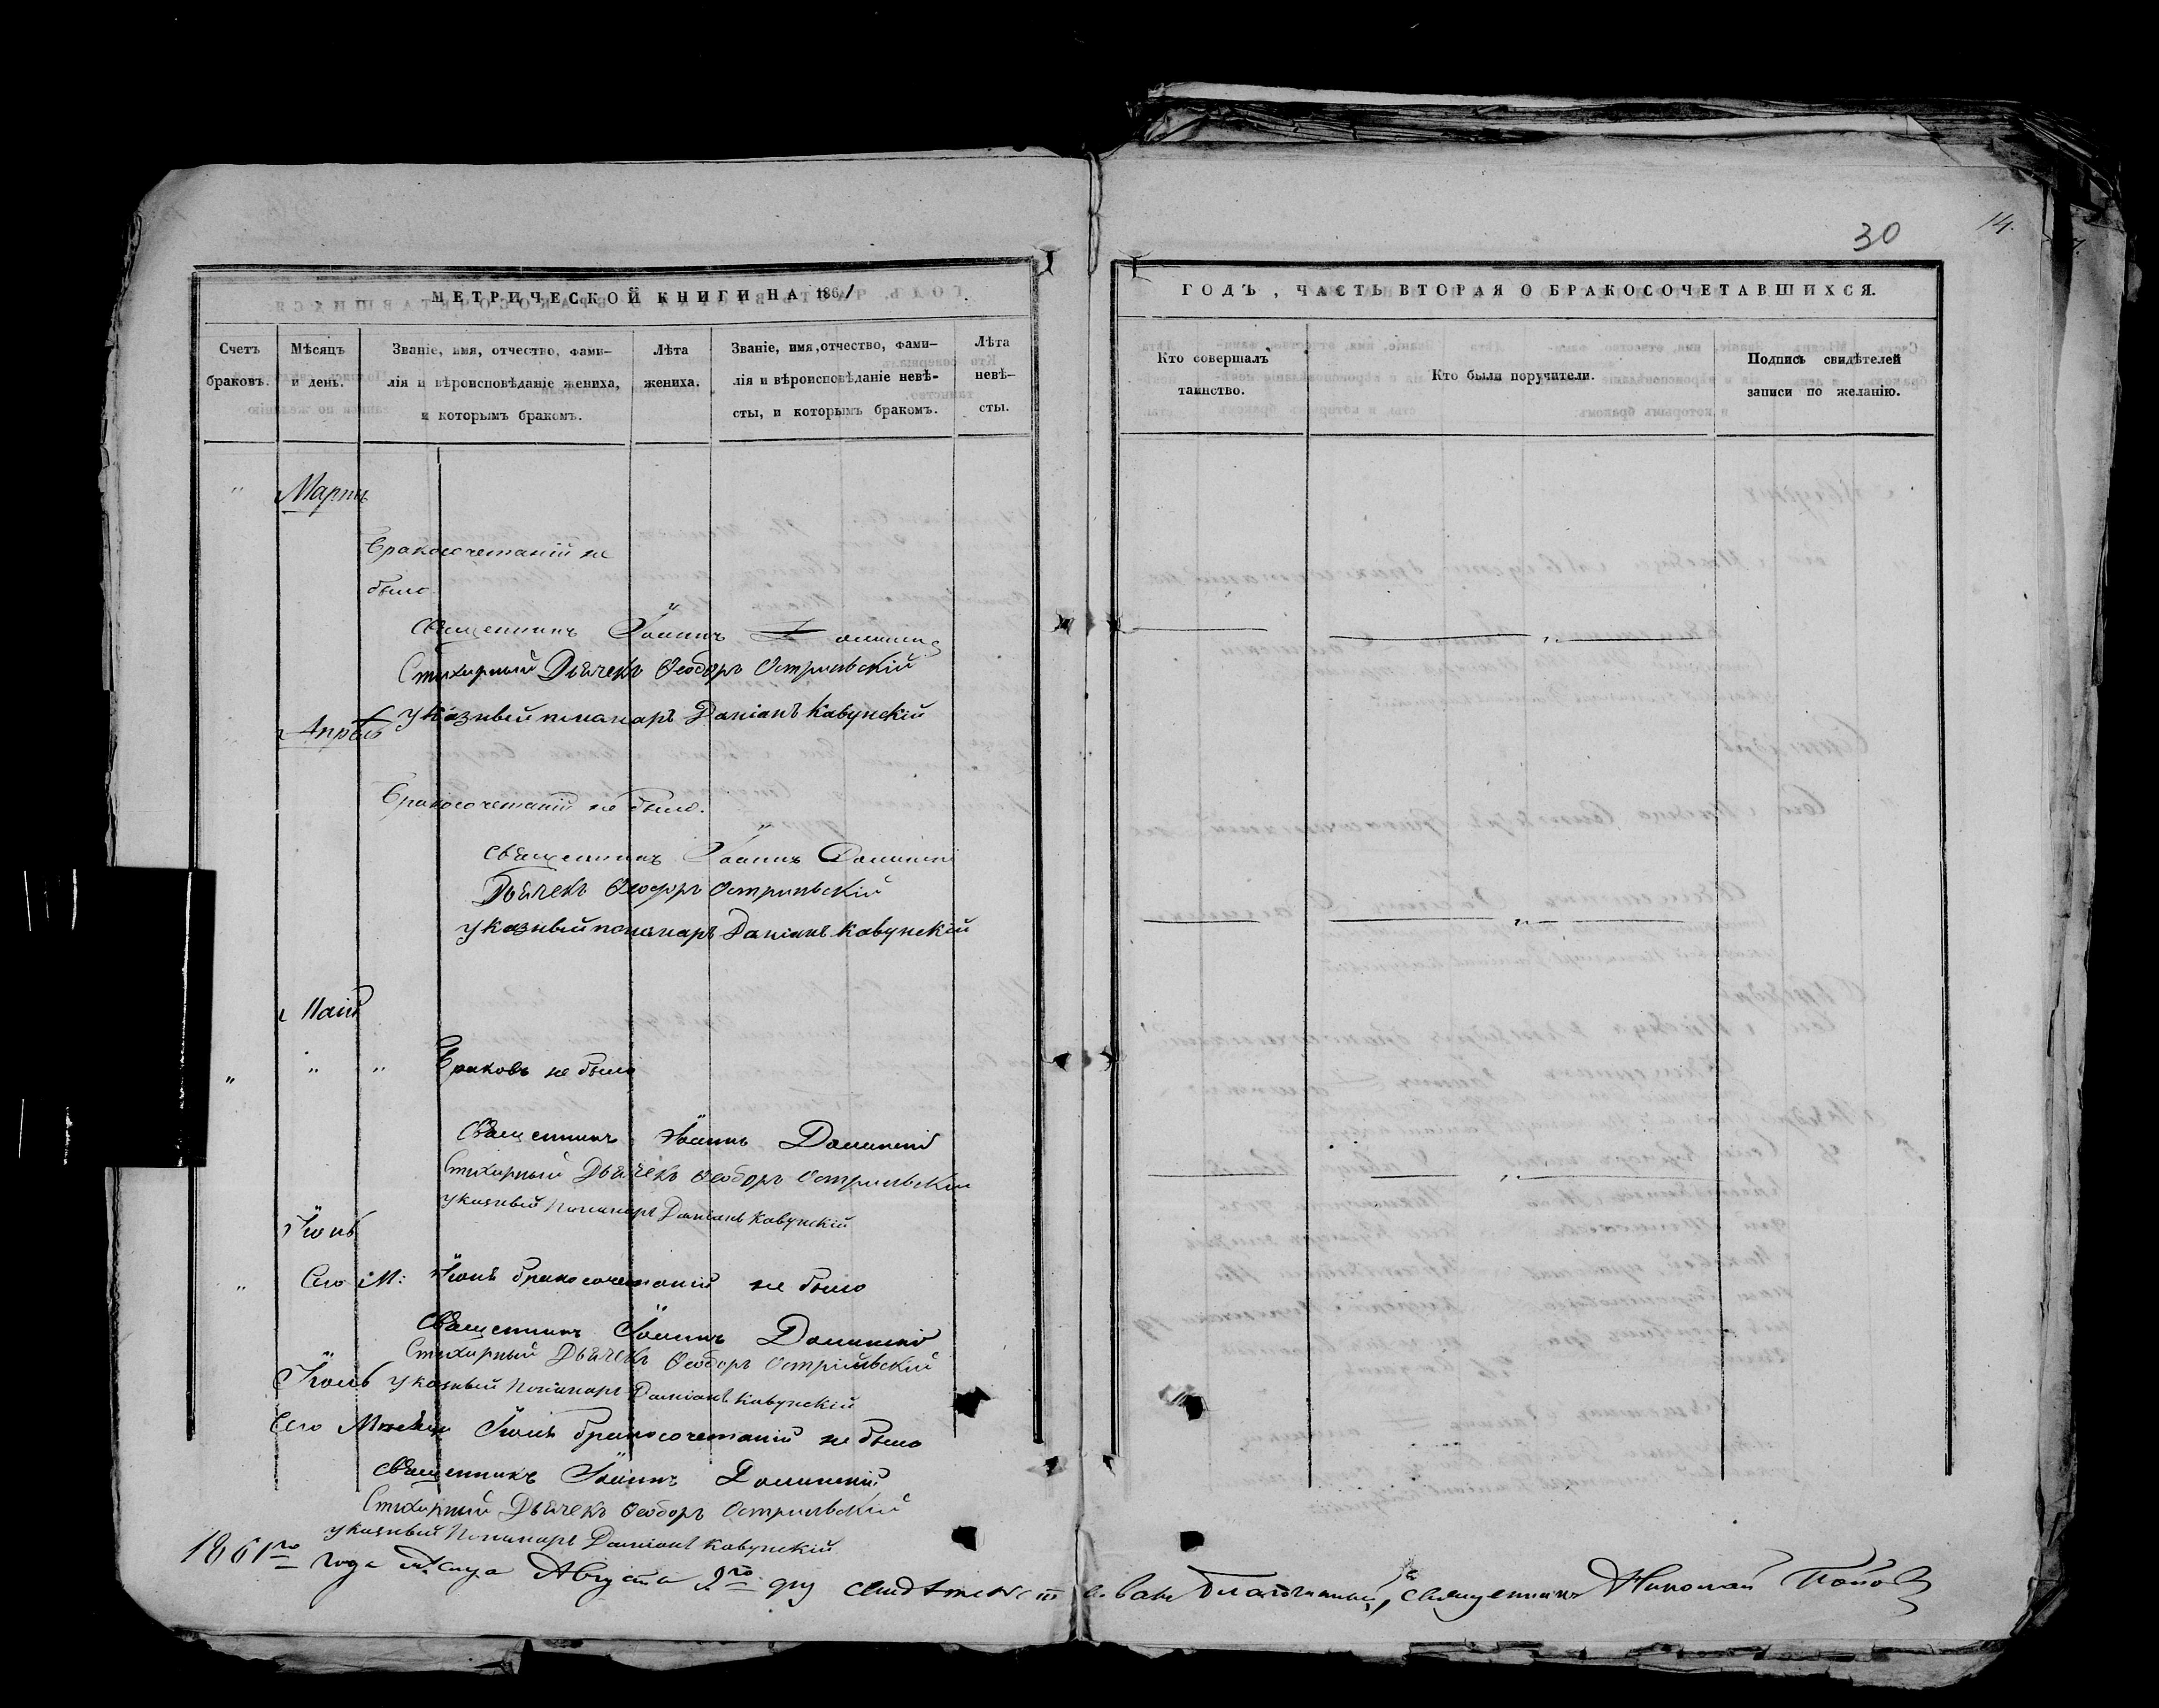 30
14.
МЕТРИЧЕСКОЙ КНИГИ НА 1861
ГОДЪ, ЧАСТЬ ВТОРАЯ О БРАКОСОЧЕТАВШИХСЯ.
Счетъ браковъ.
Мѣсяцъ и день.
Званіе, имя, отчество, фами-
лія и вѣроисповѣданіе жениха,
и которымъ бракомъ.
Лѣта жениха.
Званіе, имя, отчество, фами-
лія и вѣроисповѣданіе невѣ-
сты, и которымъ бракомъ.
Лѣта невѣ-
сты.
Кто совершалъ
таинство.
Кто были поручители.
Подпись свидѣтелей
записи по желанію.
Мартъ
Бракосочетаній не
было.
Священникъ Іоаннъ
Стихарный Дьячекъ Ѳеодоръ Остріевскій
Указный пономарь Даміанъ Кавунскій
Апрѣль
Бракосочетаній не было.
Священникъ Іоаннъ
Дьячекъ Ѳеодоръ Остріевскій
Указный пономарь Даміанъ Кавунскій
Маій
Браковъ не было
Священникъ Іоаннъ
Стихарный Дьячекъ Ѳеодоръ Остріевскій
Указный Пономарь Даміанъ Кавунскій
Іюнь
Сего М: Іюнѣ бракосочетаній не было
Священникъ Іоаннъ
Стихарный Дьячекъ Ѳеодоръ Остріевскій
Іюль
Указный Пономарь Даміанъ Кавунскій
Сего Мѣсяца Іюль бракосочетаній не было
Священникъ Іоаннъ
Стихарный Дьячекъ Ѳеодоръ Остріевскій
Указный Пономарь Даміанъ Кавунскій
1861го года Мѣсяца Августа 2го дня свидѣтельствовалъ Благочинный, священникъ Николай Попов